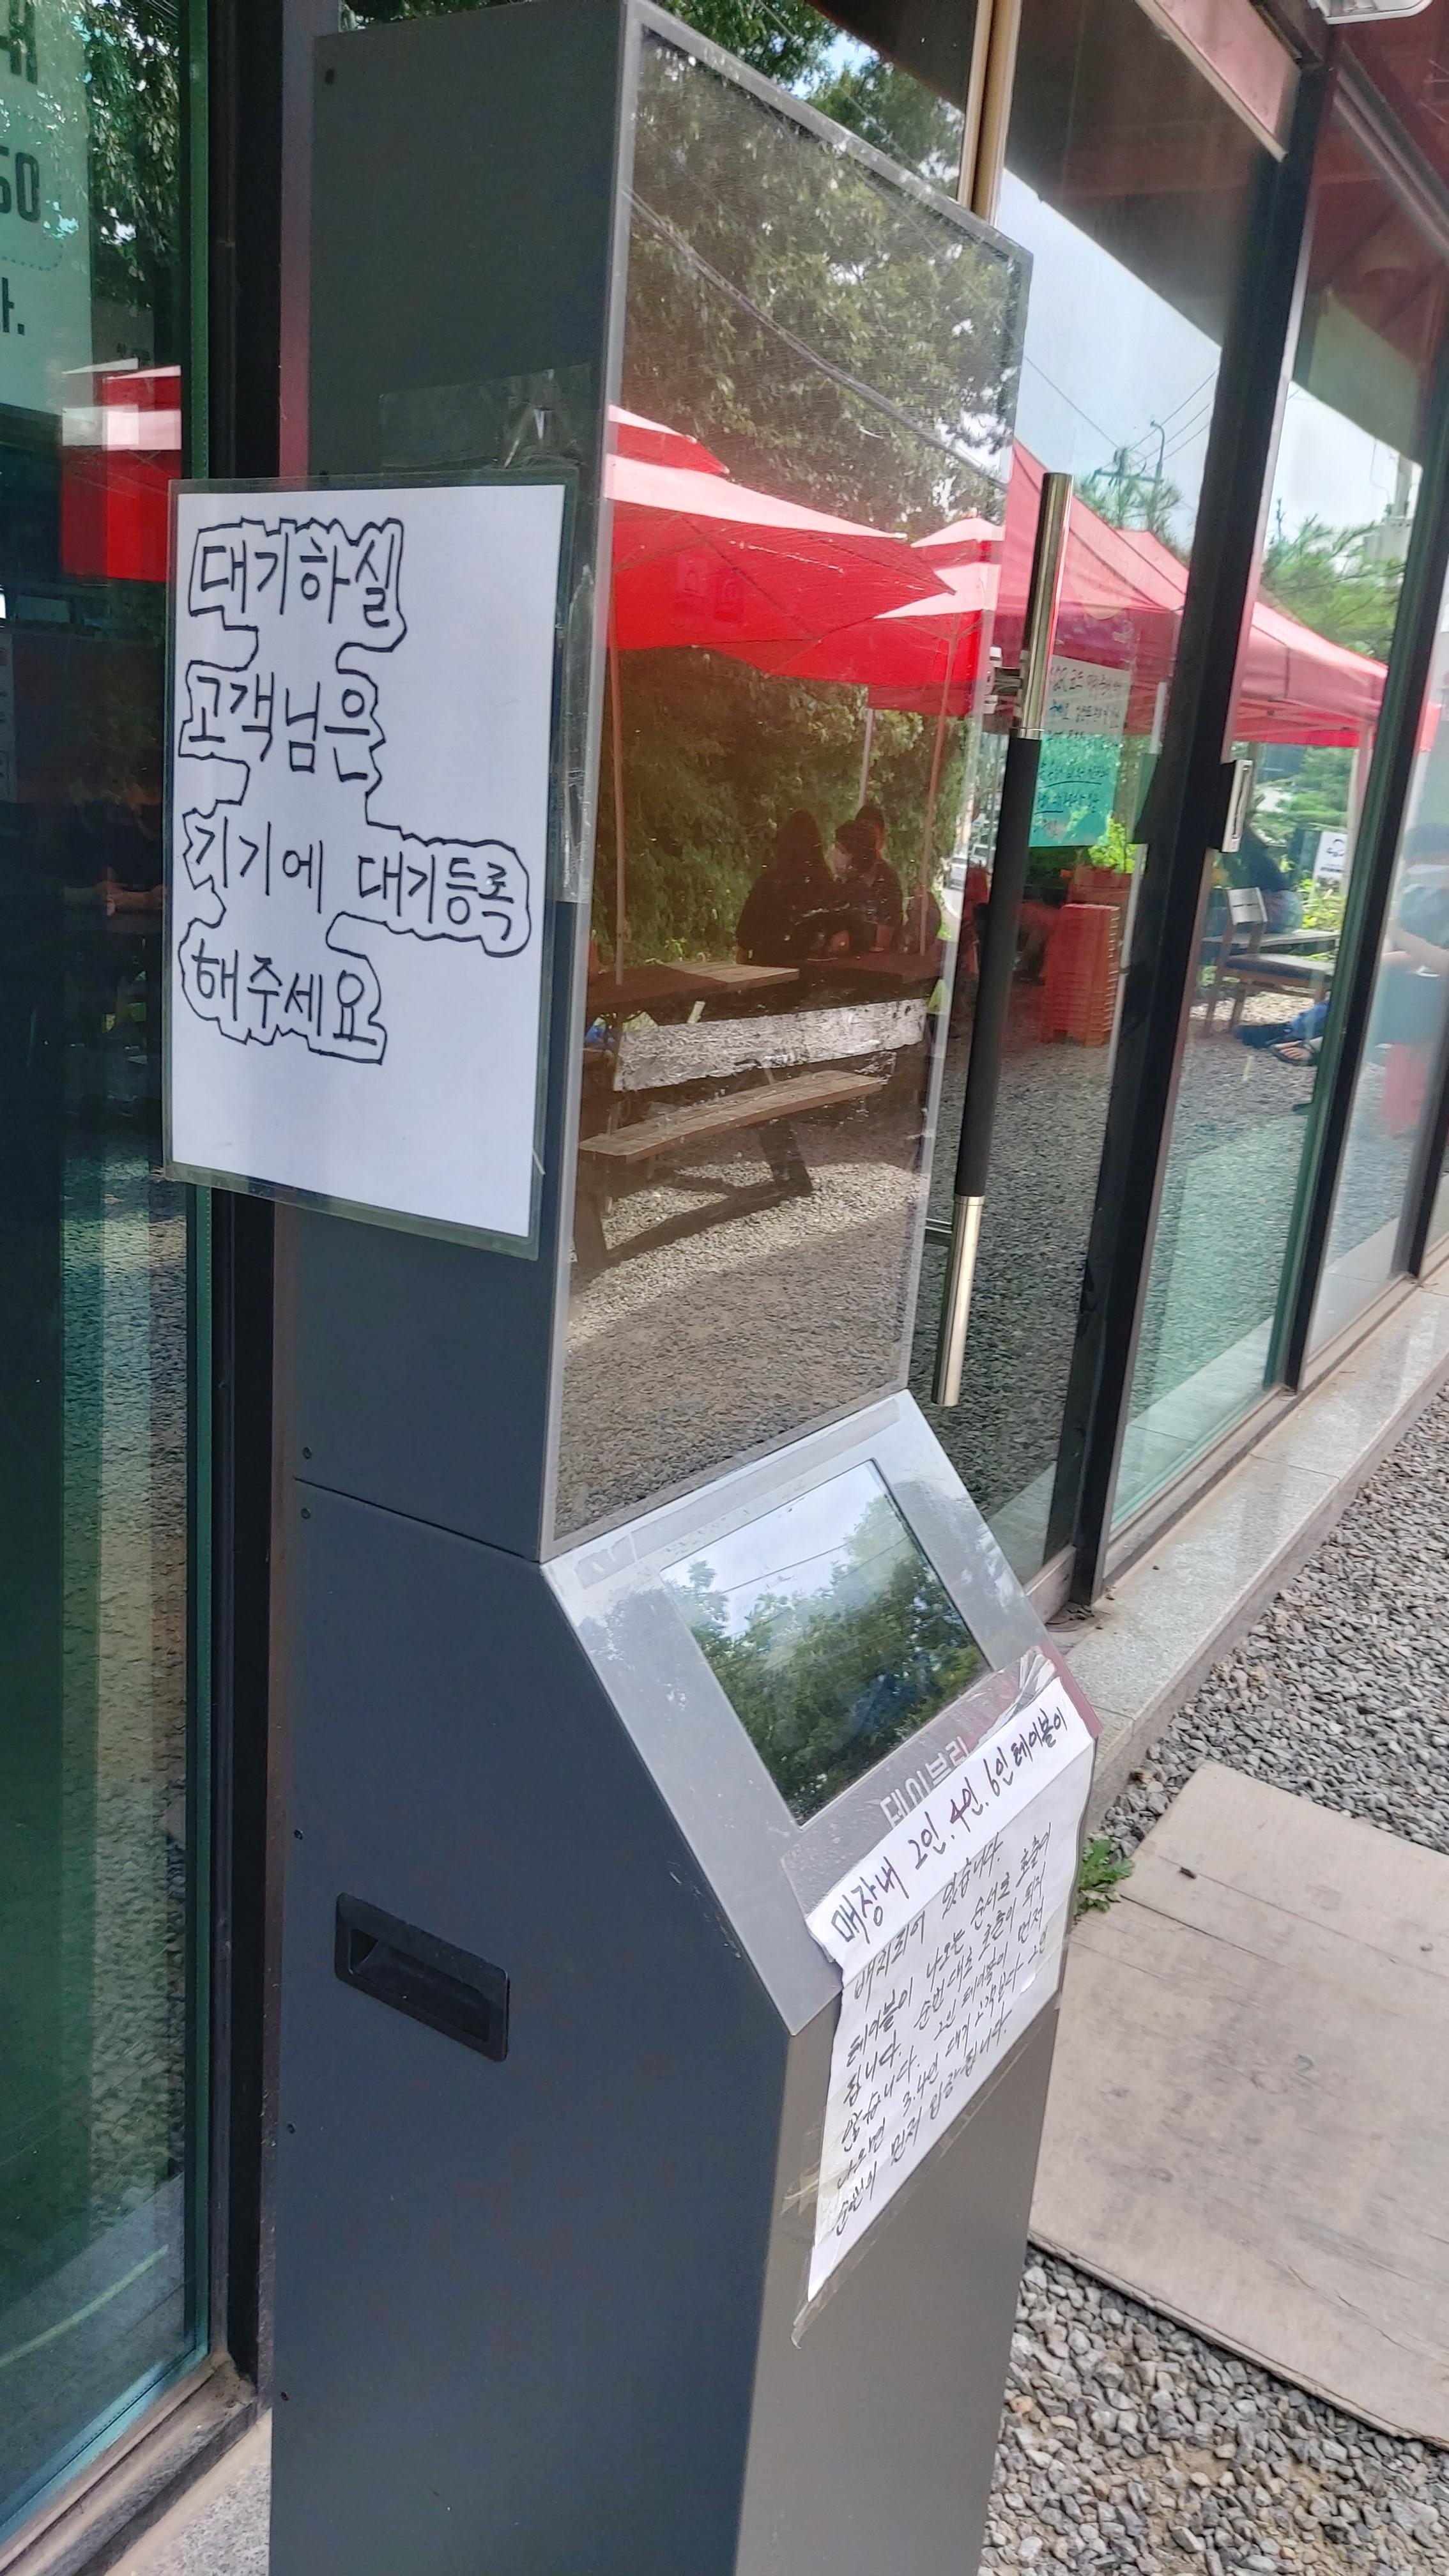 대기하실
고객님은
기기에 대기등록
해주세요
테이블리
매장내 2인.4인.6인테이블이
배치되어 있습니다.
테이블이 나오는 순서로 호출이
됩니다. 순번대로 호출이 되지
않습니다. 2인 테이블이 먼저
나오면 3.4인 대기고객보다 2인
손님이 먼저 입장됩니다.
50